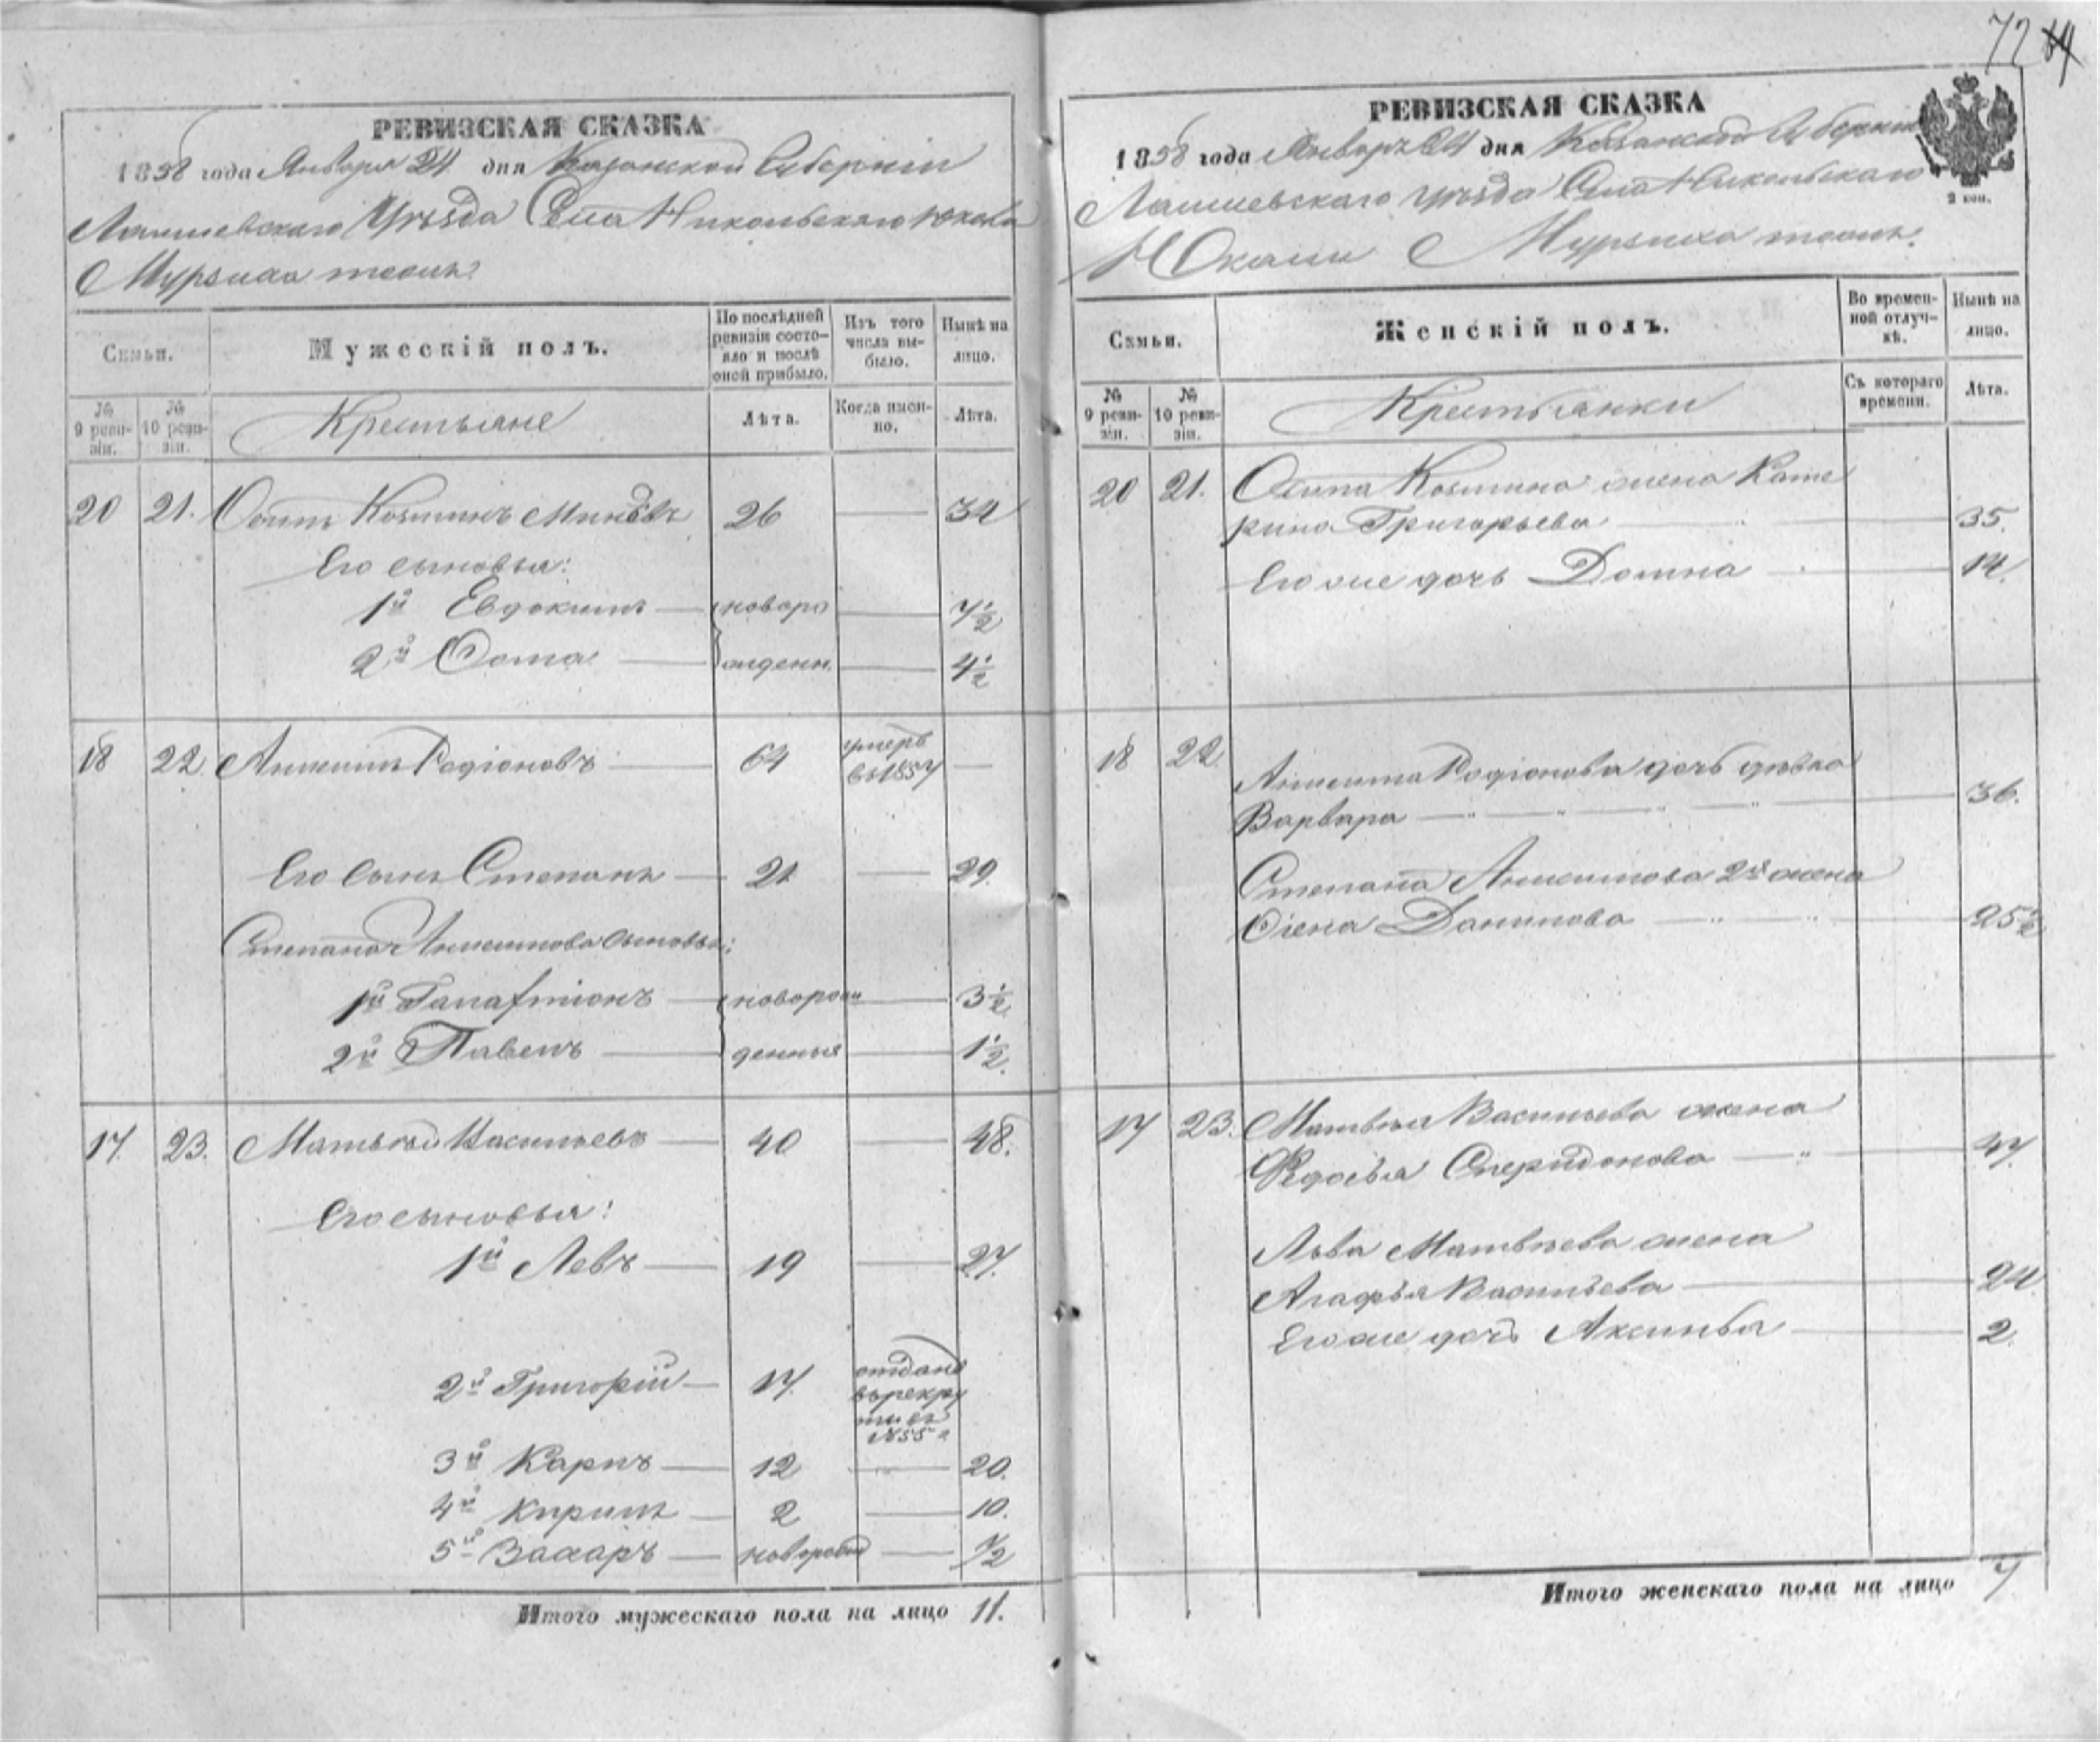 72
РЕВИЗСКАЯ СКАЗКА
1858 года Января 24 дня Казанской Губерніи
Лаишевскаго Уѣзда Села Никольскаго Юкаши
Мурзиха тожъ.
Семьи.
Мужескій полъ.
По послѣдней ревизіи состояло и послѣ оной прибыло.
Изъ того числа выбыло.
Нынѣ на лицо.
№ 9 ревизіи.
№ 10 ревизіи.
Крестьяне
Лѣта.
Когда именно.
Лѣта.
20 21. Осипъ Козминъ 26 — 34
Его сыновья:
1й Евдокимъ — новоро — 7½
2й Фома — жденн. — 4½
18 22. Анисимъ Родіоновъ — 64 умеръ въ 1857 —
Его сынъ Степанъ — 21 — 29.
Степана Анисимова сыновья:
1й Галактіонъ — новорож — 3½
2й Павелъ — денныя — 1½.
17. 23. Матвѣй Васильевъ — 40 — 48.
Его сыновья:
1й Левъ — 19 — 27.
2й Григорій — 17. отданъ въ рекруты въ 1855 г
3й Карпъ — 12 — 20.
4й Кирилъ — 2 — 10.
5й Захаръ — новорожд — ½
Итого мужескаго пола на лицо 11.
РЕВИЗСКАЯ СКАЗКА
1858 года Января 24 дня Казанской Губерніи
2 коп.
Лаишевскаго Уѣзда Села Никольскаго
Юкаши Мурзиха тожъ.
Семьи.
Женскій полъ.
Во временной отлучкѣ.
Нынѣ на лицо.
№ 9 ревизіи.
№ 10 ревизіи.
Крестьянки
Съ котораго времени.
Лѣта.
20 21. Осипа Козмина жена Кате
рина Григорьева — 35.
Его же дочь Домна — 14.
18 22 Анисима Родіонова дочь дѣвка
Варвара — 36.
Степана Анисимова 2я жена
Елена Данилова — 25½
17 23. Матвѣя Васильева жена
Федосья Спиридонова — 47.
Льва Матвѣева жена
Агафья Васильева — 24
Его же дочь Аксинья — 2.
Итого женскаго пола на лицо 7